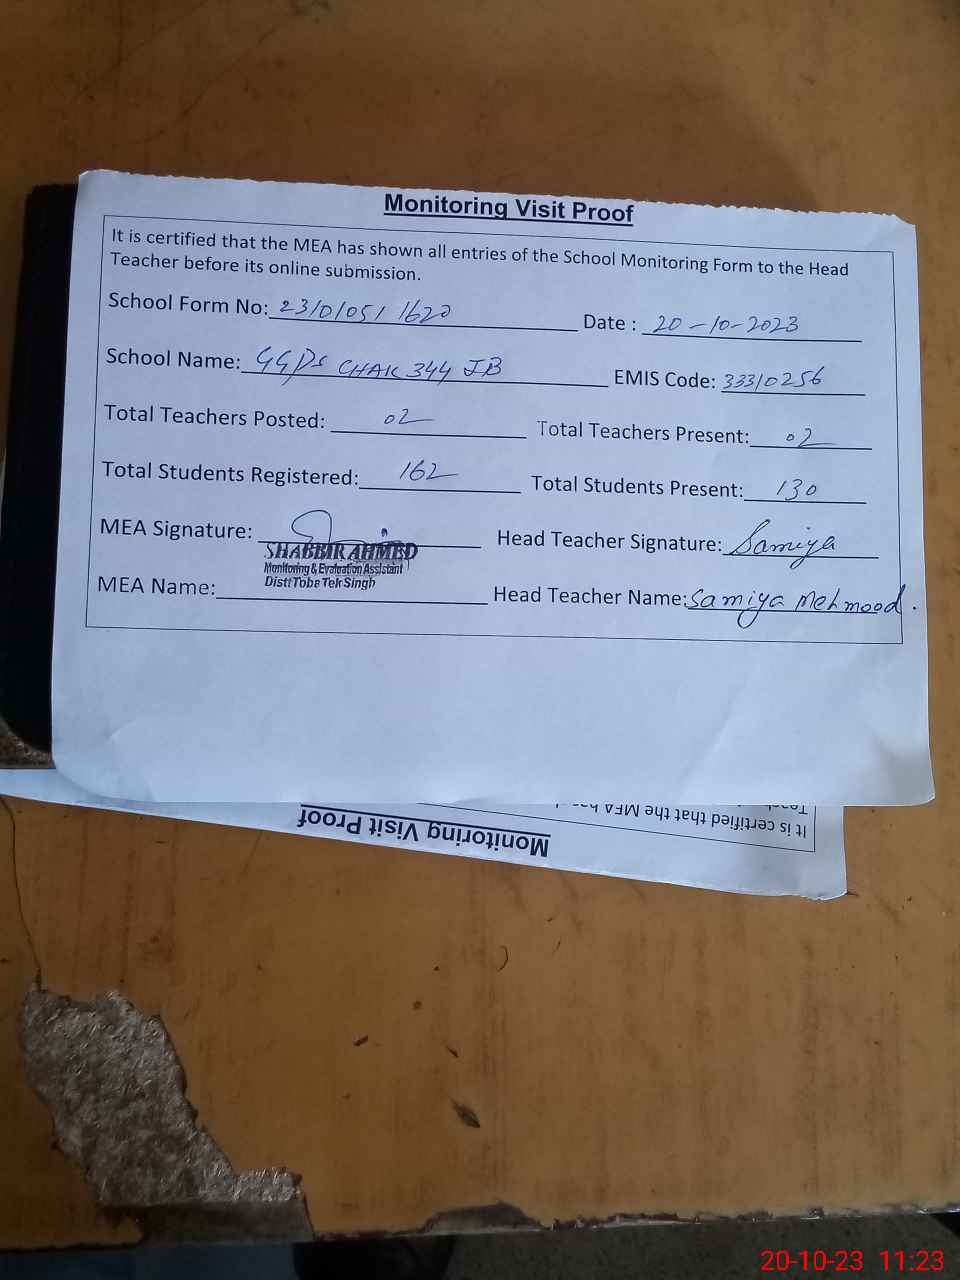 Monitoring Visit Proof
It is certified that the MEA has shown all entries of the School Monitoring Form to the Head
Teacher before its online submission.
School Form No: 23/0/051 1620 Date : 20-10-2023
School Name: GGPS CHAK 344 JB EMIS Code: 33310256
Total Teachers Posted: 02 Total Teachers Present: 02
Total Students Registered: 162 Total Students Present: 130
MEA Signature: Head Teacher Signature: Samiya
SHABBIR AHMED
Monitoring & Evaluation Assistant
Distt Toba Tek Singh
MEA Name: Head Teacher Name: Samiya Mehmood.
It is certified that the MEA
Monitoring Visit Proof
20-10-23 11:23